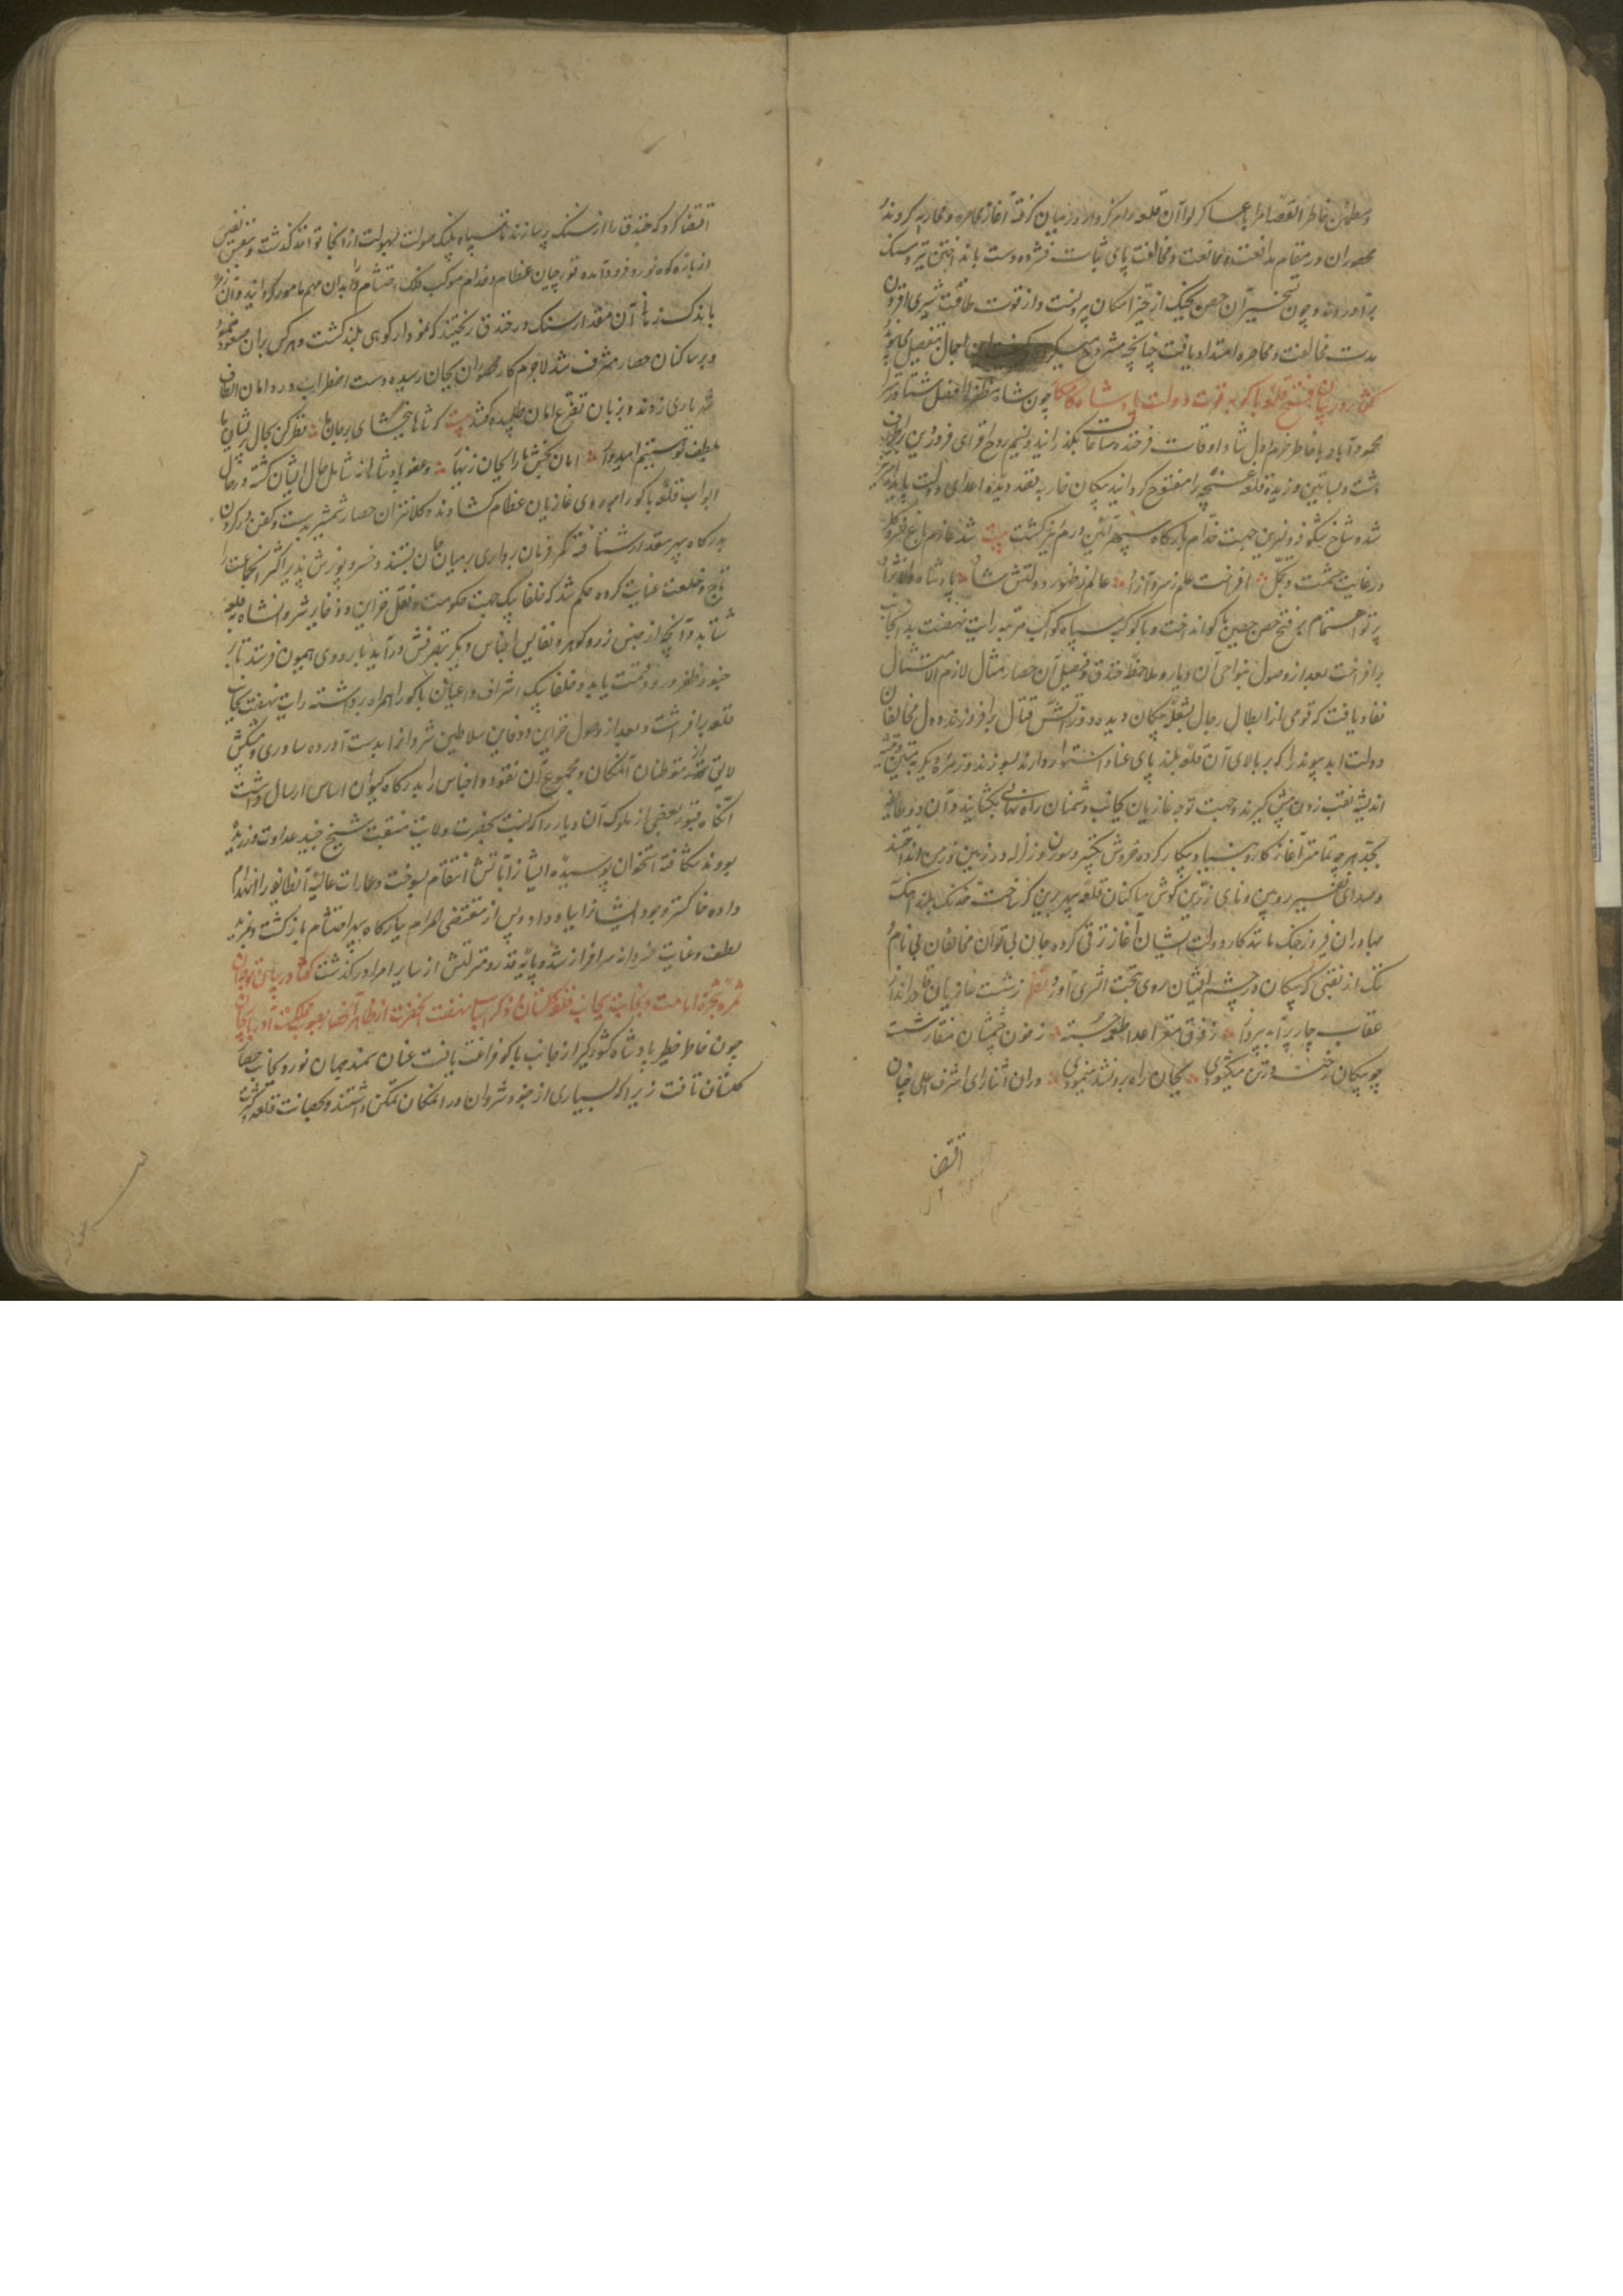 و مطمئن خاطر القصه امرا با عساکر لوا آن قلعه را مرکزوار در میان گرفته آغاز محاصره و محاربه کردند
محصوران در مقام مدافعت و ممانعت و مخالفت پای ثبات فشرده دست بانداختن تیر و سنک
برآوردند و چون تسخیر آن حصن بجنک از حیز امکان بیرونست و از قوت طاقت بشری افزون
مدت مخالفت و محاصره امتداد یافت چنانچه مشروح این اجمال بتفصیل
گفتار در بیان فتح قلعه باکو به قوت دولت پادشاه چون شاه مظفر لوا فصل شتا در
محمودآباد با خاطر خرم و دل شاد اوقات فرخنده ساعات بگذرانید و نسیم روح افزای فروردین بر اطراف
دشت و بساتین وزیده قلعه غنچه را مفتوح گردانید پیکان خار به قصد دیده اعدای دولت
شد و شاخ شکوفه و نسرین جهت خدام بارگاه سپهر آئین درم ریز گشت بیت شد عازم باغ خسرو گل
در غایت حشمت و تجمل افراخت علم ز سرو آزاد عالم ز ظهور دولتش شاد پادشاه
پرتو اهتمام بر فتح حصن حصین باکو انداخت و با کوکب سپاه کواکب مرتبه رایت نهضت بدانجانب
برافراخت بعد از وصول بنواحی آن دیار و ملاحظه خندق و فصیل آن حصار مثال لازم الامتثال
نفاذ یافت که قومی از ابطال رجال بشعله پیکان دیده دوز آتش قتال برافروزند و دل مخالفان
دولت ابد پیوند را که بر بالای آن قلعه بلند پای عناد استوار دارند بسوزند و زمره دیگر
اندیشه نقب زدن پیش گیرند و جهت توجه غازیان بجانب دشمنان راه نهانی بکشایند و آن دو طایفه
بجد هر چه تمامتر آغاز کار و بنیاد پیکار کرده خروش تکبیر و سورن و زلزله در زمین و زمن انداختند
و صدای نفیر رویین و نای زرین بگوش ساکنان قلعه سپهر برین خدنک بلند آهنک
بهادران فیروز جنک مانند کار دولت ایشان آغاز ترقی کرده جان بی توان مخالفان بی نام و
ننک از نقبی که پیکان در چشم ایشان روی بتحت الثری آورد نظم ز شست غازیان
عقاب چار پر پرواز ز فرق مغز اعدا طعمه جسته ز خون چشمشان منقار شسته
چو پیکان رخنه در تن میگشودی بجان راه برونشد مینمودی در آن اثنا رای اشرف اعلی چنان
اقتضا
اقتضا کرد که خندق را از سنک پر سازند تا سپاه پلنک صولت بسهولت از آنجا توانند گذشت و بنفس نفیس
از باره کوه نورد فرود آمده قورچیان عظام و خدام موکب فلک احتشام را بدان مهم مامور گردانید و آن زمره
باندک زمانی آن مقدار سنک در خندق ریختند که نمودار کوهی بلند گشت و هر کس بر آن صعود نمود
و بر ساکنان حصار مشرف شد لاجرم کار محصوران بجان رسیده دست اضطراب در دامان الطاف
شهریاری زدند و بزبان تضرع امان طلبیده گفتند بیت که شاها ببخشای بر جان ما نظر کن بحال پریشان ما
بلطف تو هستیم امیدوار امان بخش ما را بجان زینهار و عفو پادشاهانه شامل حال ایشان گشته در حال
ابواب قلعه باکو را بر روی غازیان عظام گشادند و کلانتران حصار شمشیر بدست و کفن در گردن
بدرگاه سپهر مقدار شتافته کمر فرمان برداری بر میان جان بستند و خسرو پوزش پذیر اکثر آنجماعت را
تاج و خلعت عنایت کرده حکم شد که خلفا بیک جهت حکومت و نقل خزاین و ذخایر شروانشاه بقلعه
شتابد و آنچه از جنس زر و گوهر و نفایس اجناس دیگر بتصرفش درآید باردوی همیون فرستد تا بر
جنود ظفر ورود قسمت یابد و خلفا بیک اشراف و اعیان باکو را همراه برداشته رایت نهضت بجانب
قلعه برافراشت و بعد از وصول خزاین و دفاین سلاطین شروان را بدست آورده ساوری و پیشکش
لایق نیز از متوطنان آنمکان و مجموع آن نقود و اجناس را بدرگاه کیوان اساس ارسال داشت
آنگاه قبور بعضی از ملوک آن دیار را که نسبت بحضرت ولایت منقبت شیخ جنید عداوت ورزیده
بودند شکافته استخوان پوسیده ایشان را بآتش انتقام بسوخت و عمارات عالیه آنطایفه را انهدام
داده خاکستر وجود ایشان را بباد داد و پس از مقتضی المرام ببارگاه سپهر احتشام بازگشت و بمزید
لطف و عنایت خسروانه سرافراز شد و پایه قدر و منزلتش از سایر امرا درگذشت گفتار در بیان توجه آن
ثمره شجره امامت و نجابت بجانب قلعه گلستان و ذکر اسباب نهضت آنحضرت از ظاهر آنحصار بصوب مملکت آذربایجان
چون خاطر خطیر پادشاه کشورگیر از جانب باکو فراغت یافت عنان سمند جهان نورد بجانب حصار
گلستان تافت زیرا که بسیاری از جنود شروان در آنمکان تمکن داشتند و بحصانت قلعه